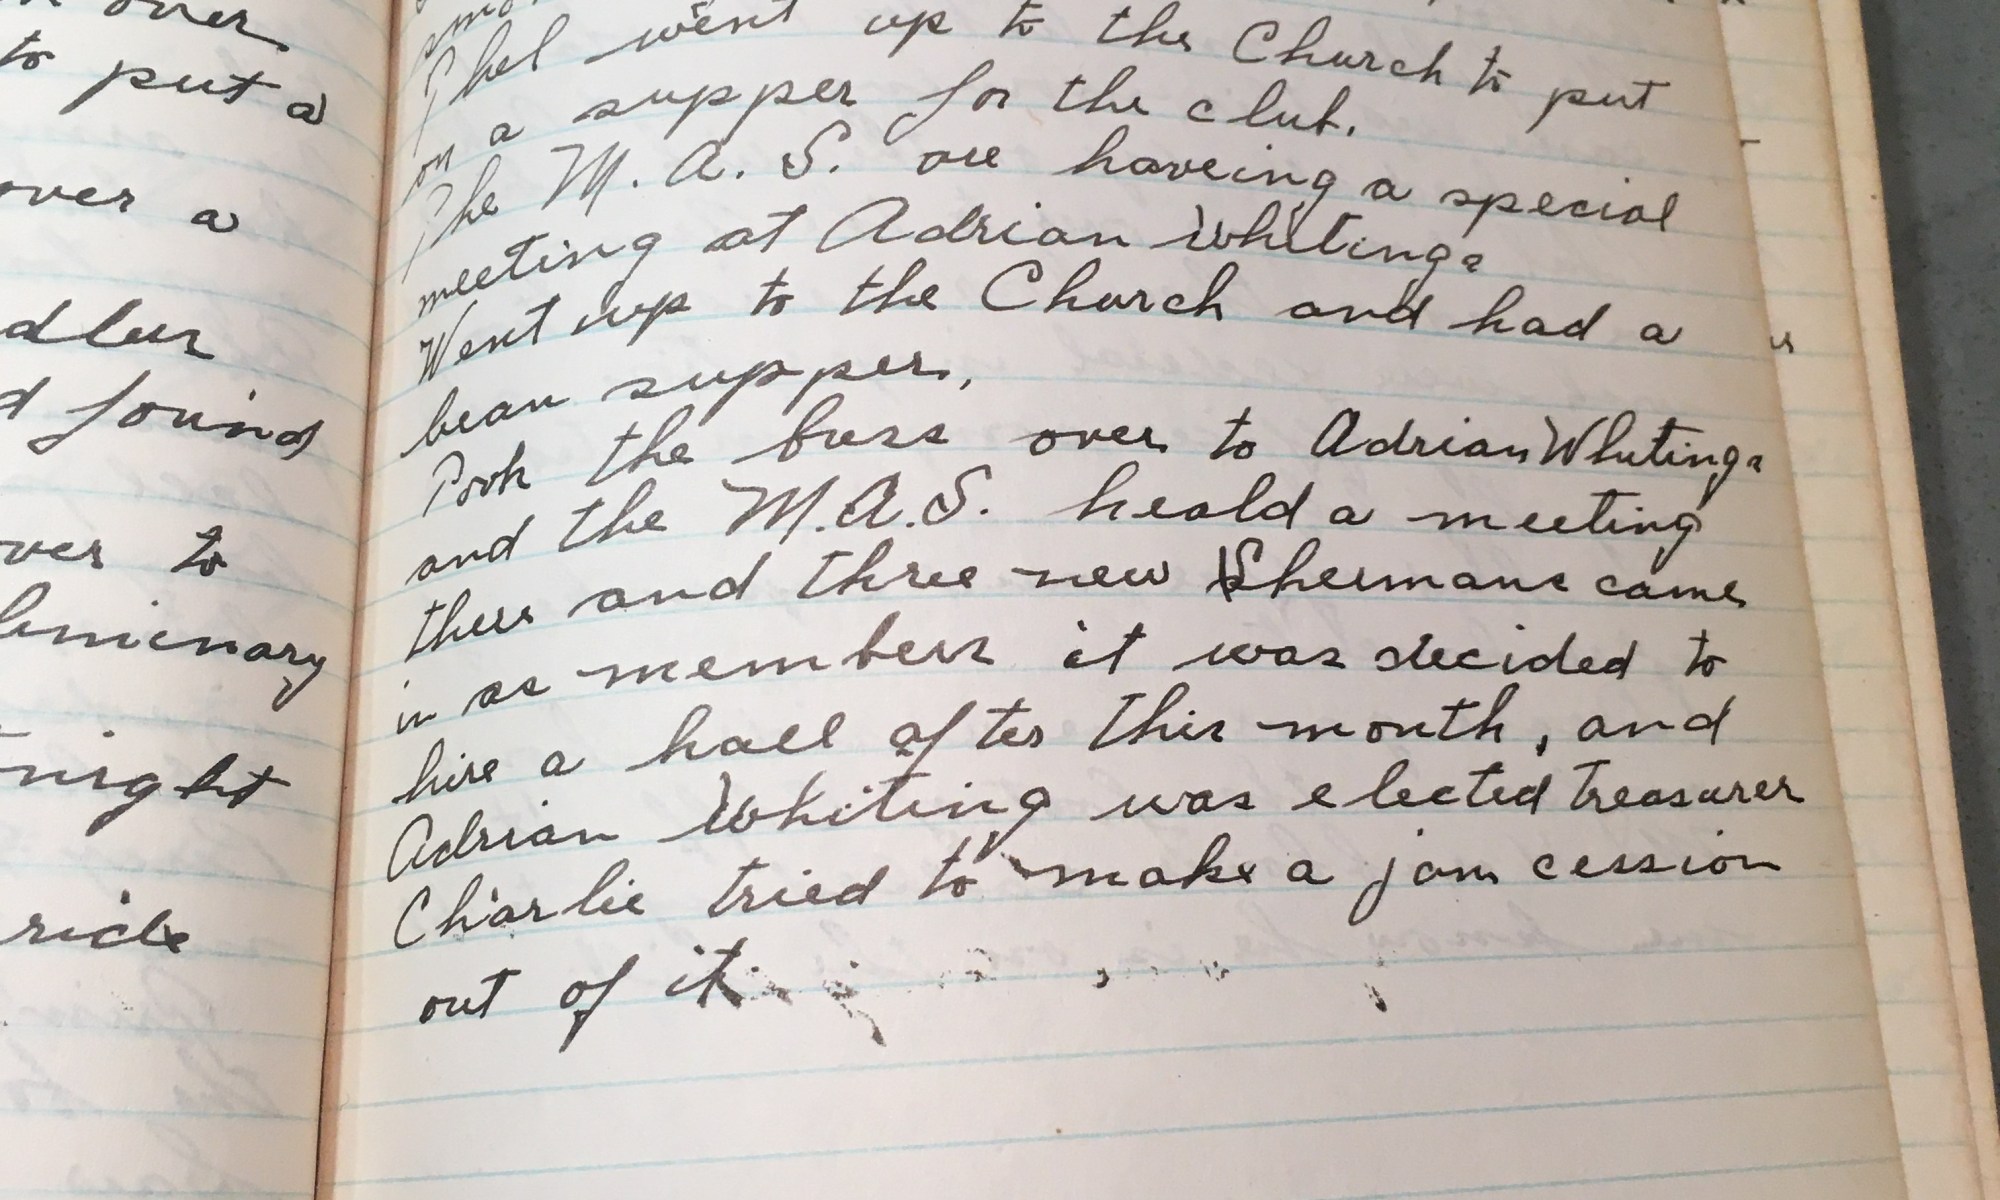 over
to put a
over a
found
over to
night
ride
went up to the Church to put
on a supper for the club.
The M. A. S. are haveing a special
meeting at Adrian Whitings
Went up to the Church and had a
bean supper.
Took the buss over to Adrian Whitings
and the M.A.S. heald a meeting
there and three new Shermans came
in as members it was decided to
hire a hall after this month, and
Adrian Whiting was elected treasurer
Charlie tried to make a jam cession
out of it